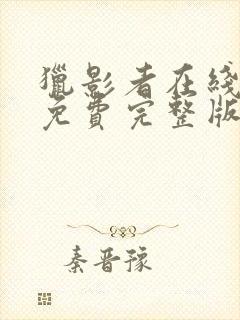 獵影者在綫
免費完整版
秦晋豫